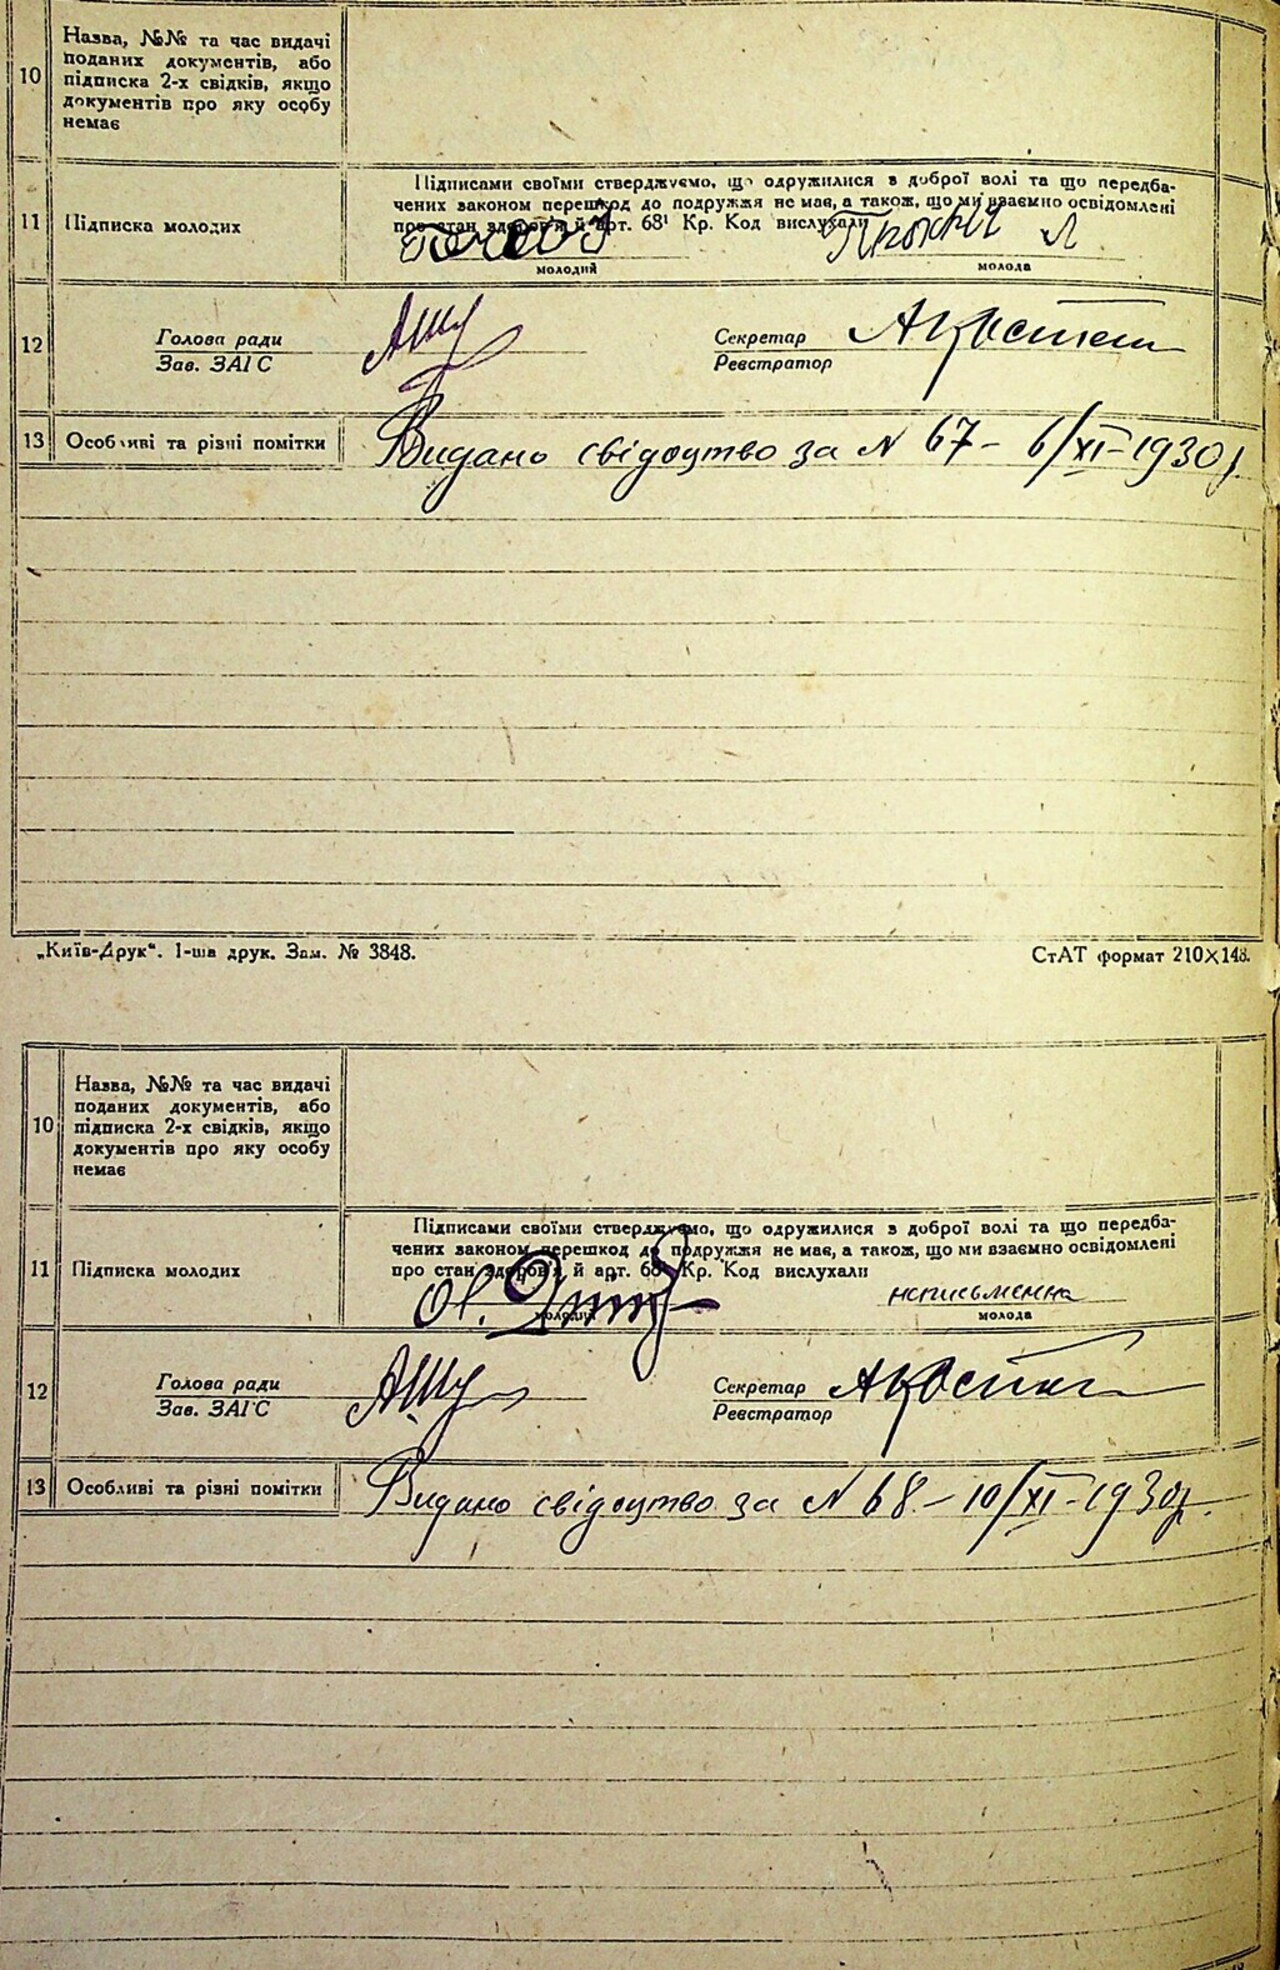 10
Назва, №№ та час видачі
поданих документів, або
підписка 2-х свідків, якщо
документів про яку особу
немає
11
Підписка молодих
Підписами своїми стверджуємо, що одружилися з доброї волі та що передба-
чених законом перешкод до подружжя не має, а також, що ми взаємно освідомлені
про стан здоров'я й арт. 68¹ Кр. Код вислухали
молодий
молода
12
Голова ради
Зав. ЗАГС
Секретар
Реєстратор
13
Особливі та різні помітки
Видано свідоцтво за N 67 - 6/XI - 1930 р.
„Київ-Друк“. 1-ша друк. Зам. № 3848.
СтАТ формат 210×148.
10
Назва, №№ та час видачі
поданих документів, або
підписка 2-х свідків, якщо
документів про яку особу
немає
11
Підписка молодих
Підписами своїми стверджуємо, що одружилися з доброї волі та що передба-
чених законом перешкод до подружжя не має, а також, що ми взаємно освідомлені
про стан здоров'я й арт. 68¹ Кр. Код вислухали
неписьменна
молодий
молода
12
Голова ради
Зав. ЗАГС
Секретар
Реєстратор
13
Особливі та різні помітки
Видано свідоцтво за N 68 - 10/XI - 1930 р.